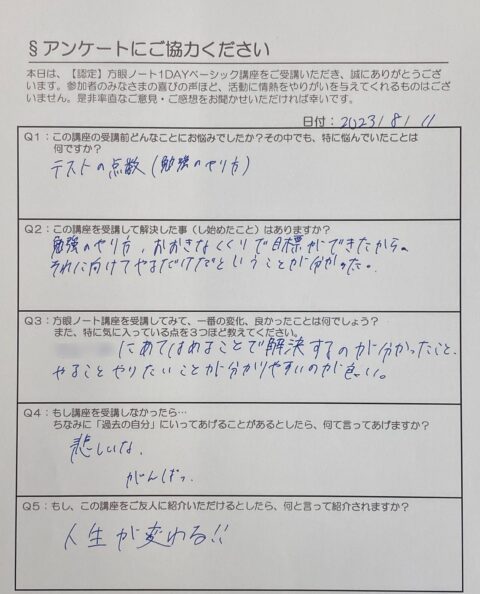 §アンケートにご協力ください
本日は、【認定】方眼ノート1DAYベーシック講座をご受講いただき、誠にありがとうござ
います。参加者のみなさまの喜びの声ほど、活動に情熱をやりがいを与えてくれるものはござ
いません。是非率直なご意見・ご感想をお聞かせいただければ幸いです。
日付：2023/8/11
Q1：この講座の受講前どんなことにお悩みでしたか？その中でも、特に悩んでいたことは
何ですか？
テストの点数(勉強のやり方)
Q2：この講座を受講して解決した事（し始めたこと）はありますか？
勉強のやり方、おおきなくくりで目標が
できたから
それに向けてやるだけだということが分かった。
Q3：方眼ノート講座を受講してみて、一番の変化、良かったことは何でしょう？
また、特に気に入っている点を３つほど教えてください。
にあてはめることで解決するのが分かったこと、
やることやりたいことが分かりやすいのが良い。
Q4：もし講座を受講しなかったら…
ちなみに「過去の自分」にいってあげることがあるとしたら、何て言ってあげますか？
悲しいな、
がんばっ、
Q5：もし、この講座をご友人に紹介いただけるとしたら、何と言って紹介されますか？
人生が変わる!!